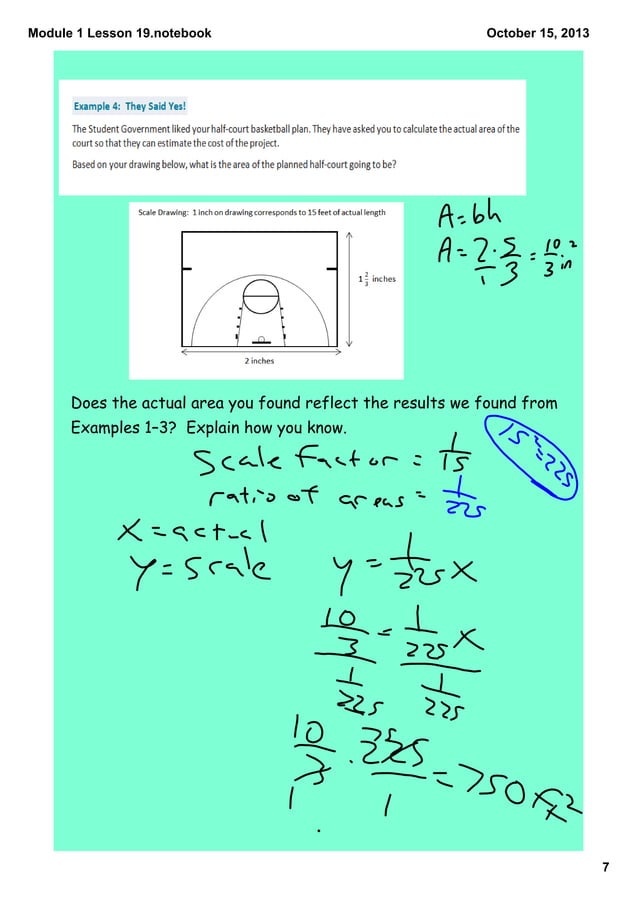 Module 1 Lesson 19.notebook
October 15, 2013
Example 4: They Said Yes!
The Student Government liked your half-court basketball plan. They have asked you to calculate the actual area of the
court so that they can estimate the cost of the project.
Based on your drawing below, what is the area of the planned half-court going to be?
Scale Drawing: 1 inch on drawing corresponds to 15 feet of actual length
1 2/3 inches
2 inches
A=bh
A=2/1·5/3=10/3 in²
Does the actual area you found reflect the results we found from
Examples 1–3? Explain how you know.
Scale factor = 1/15
15²=225
ratio of areas = 1/225
X=actual
y=scale
y=1/225 x
10/3 = 1/225 x
1/225 1/225
10/3 · 225/1 = 750 ft²
75
1
7